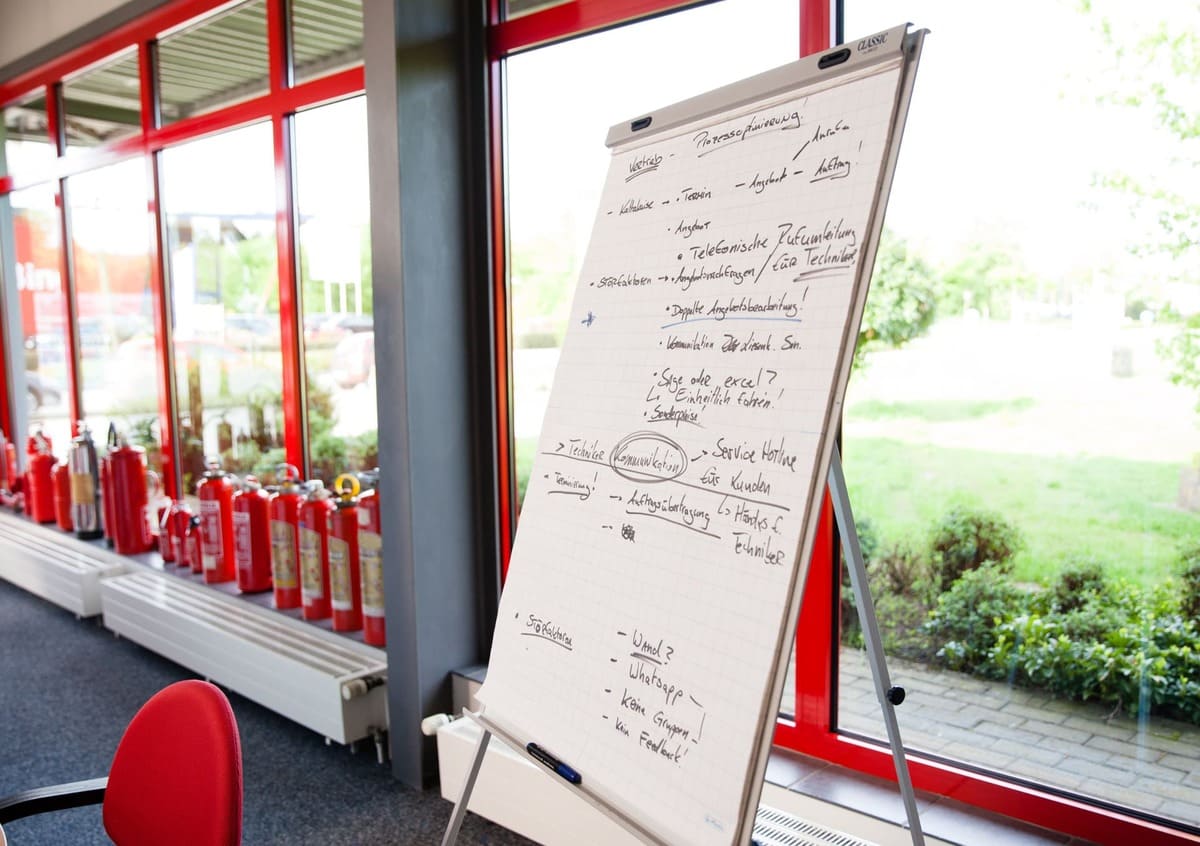 CLASSIC
Vertrieb - Prozessoptimierung!
- Kaltakquise → • Termin - Angebot - Auftrag!
• Angebot
• Telefonische Rufumleitung
für Techniker
• Störfaktoren → • Angebotsnachfragen /
• Doppelte Angebotsbearbeitung!
• Kommunikation
• Sage oder excel?
↳ Einheitlich fahren!
• Sonderpreise!
> Techniker Kommunikation → Service Hotline
für Kunden
• Terminierung! → Auftragsübertragung ↳ Handys f.
Techniker
• Störfaktoren
- Wand?
- Whatsapp
- Keine Gruppen
- Kein Feedback!